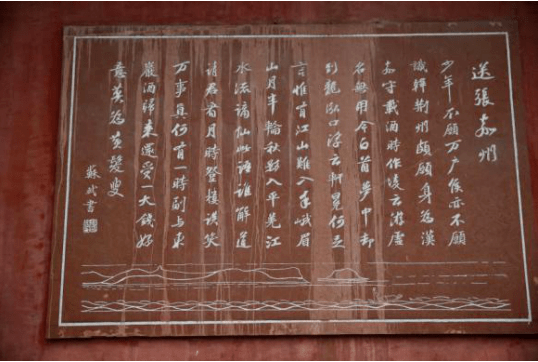 送張嘉州
少年不願万户侯亦不願
識韓荊州頗願身為漢
嘉守載酒時作凌云游虛
名無用今白首夢中却
到龍泓口浮云軒冕何足
言惟有江山難入手峨眉
山月半輪秋影入平羌江
水流謫仙此語誰解道
請君看月時登樓談笑
万事真何有一時付与東
巖酒歸來還受一大錢好
意莫違黃髮叟
蘇軾書